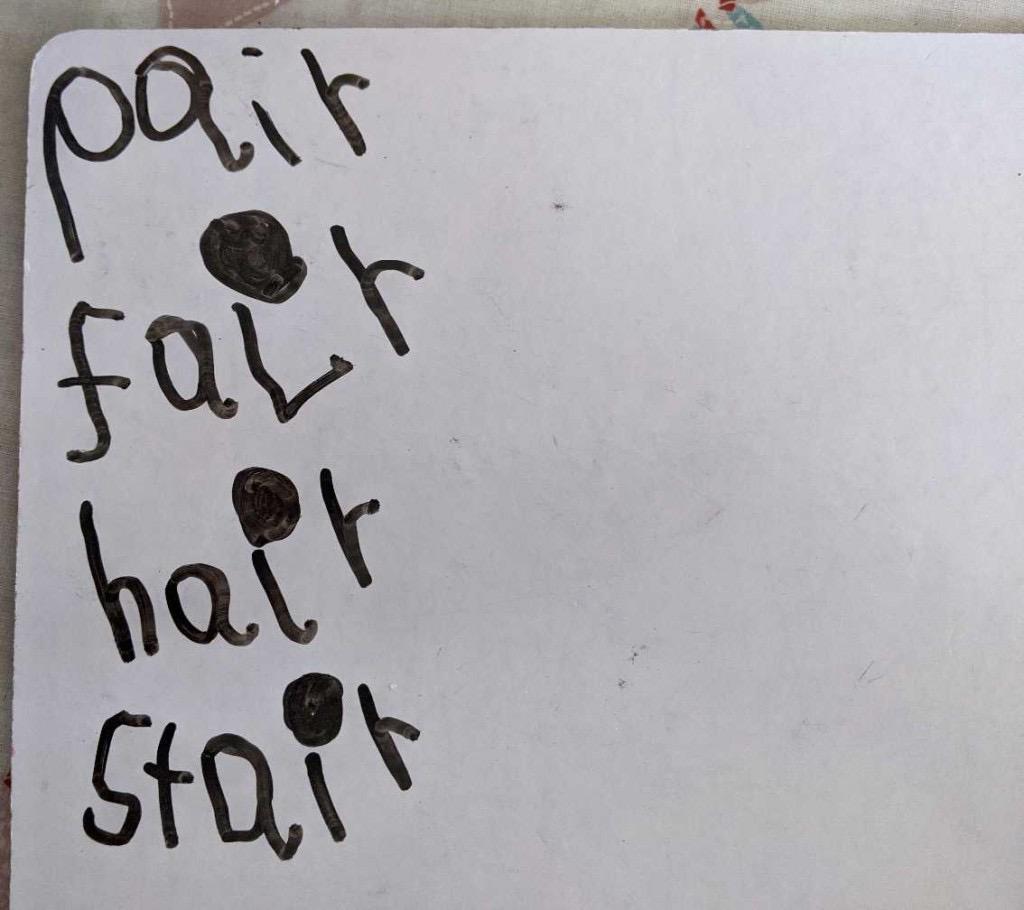 pair
fair
hair
stair